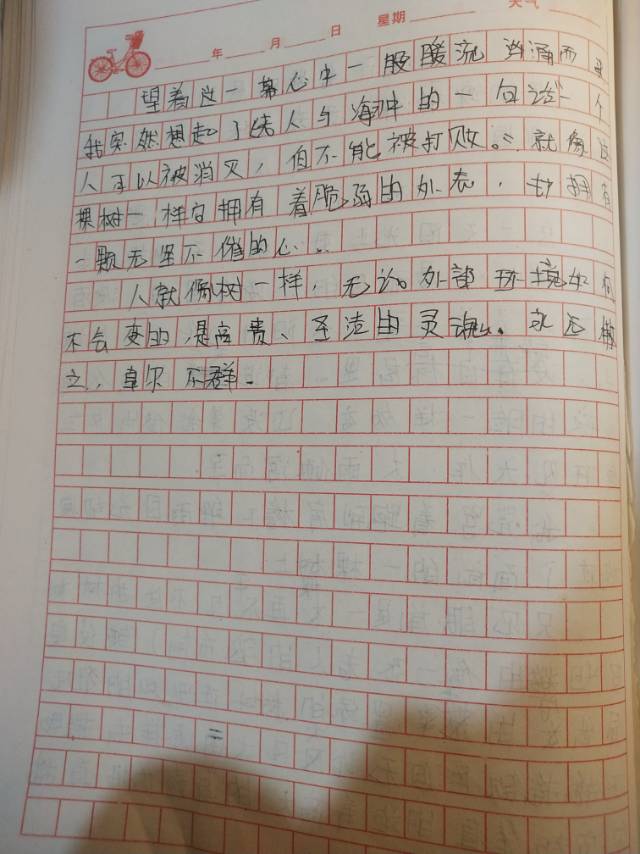 年 月 日 星期 天气
望着这一幕心中一股暖流汹涌而
我突然想起了《老人与海》中的一句话“一个
人可以被消灭，但不能被打败。”就像这
棵树一样它拥有着脆弱的外表，却拥有
一颗无坚不催的心。
人就像树一样，无论外部环境如何
不会变的，是高贵、圣洁的灵魂。永远
之，卓尔不群。